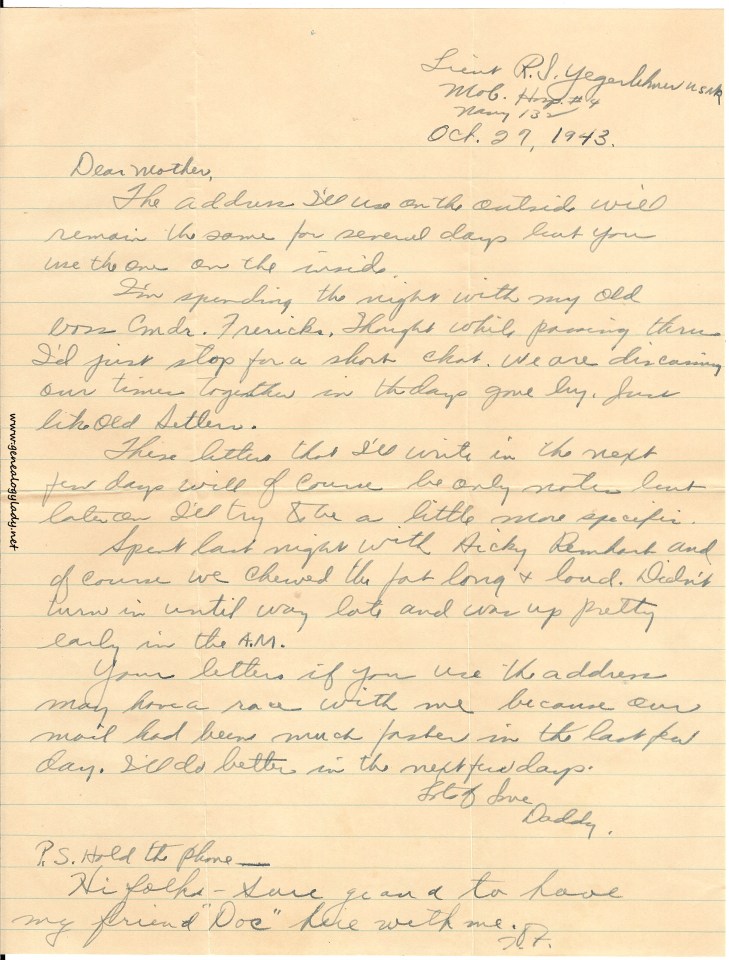 Lieut R.S. Yegerlehner USNR
Mob. Hosp. #4
Navy 132
Oct. 27, 1943.
Dear Mother,
The address I'll use on the outside will
remain the same for several days but you
use the one on the inside.
I'm spending the night with my old
boss Cmdr. Frerichs. Thought while passing thru
I'd just stop for a short chat. We are discussing
our times together in the days gone by. Just
like Old Settlers.
These letters that I'll write in the next
few days will of course be only notes but
later on I'll try & be a little more specific.
Spent last night with Dicky Reinhart and
of course we chewed the fat long & loud. Didn't
turn in until way late and was up pretty
early in the A.M.
Your letters if you use the address
may have a race with me because our
mail had been much faster in the last few
day. I'll do better in the next few days.
Lots of Love
Daddy.
P.S. Hold the phone—
Hi folks – Sure grand to have
my friend "Doc" here with me.
F.
www.genealogylady.net